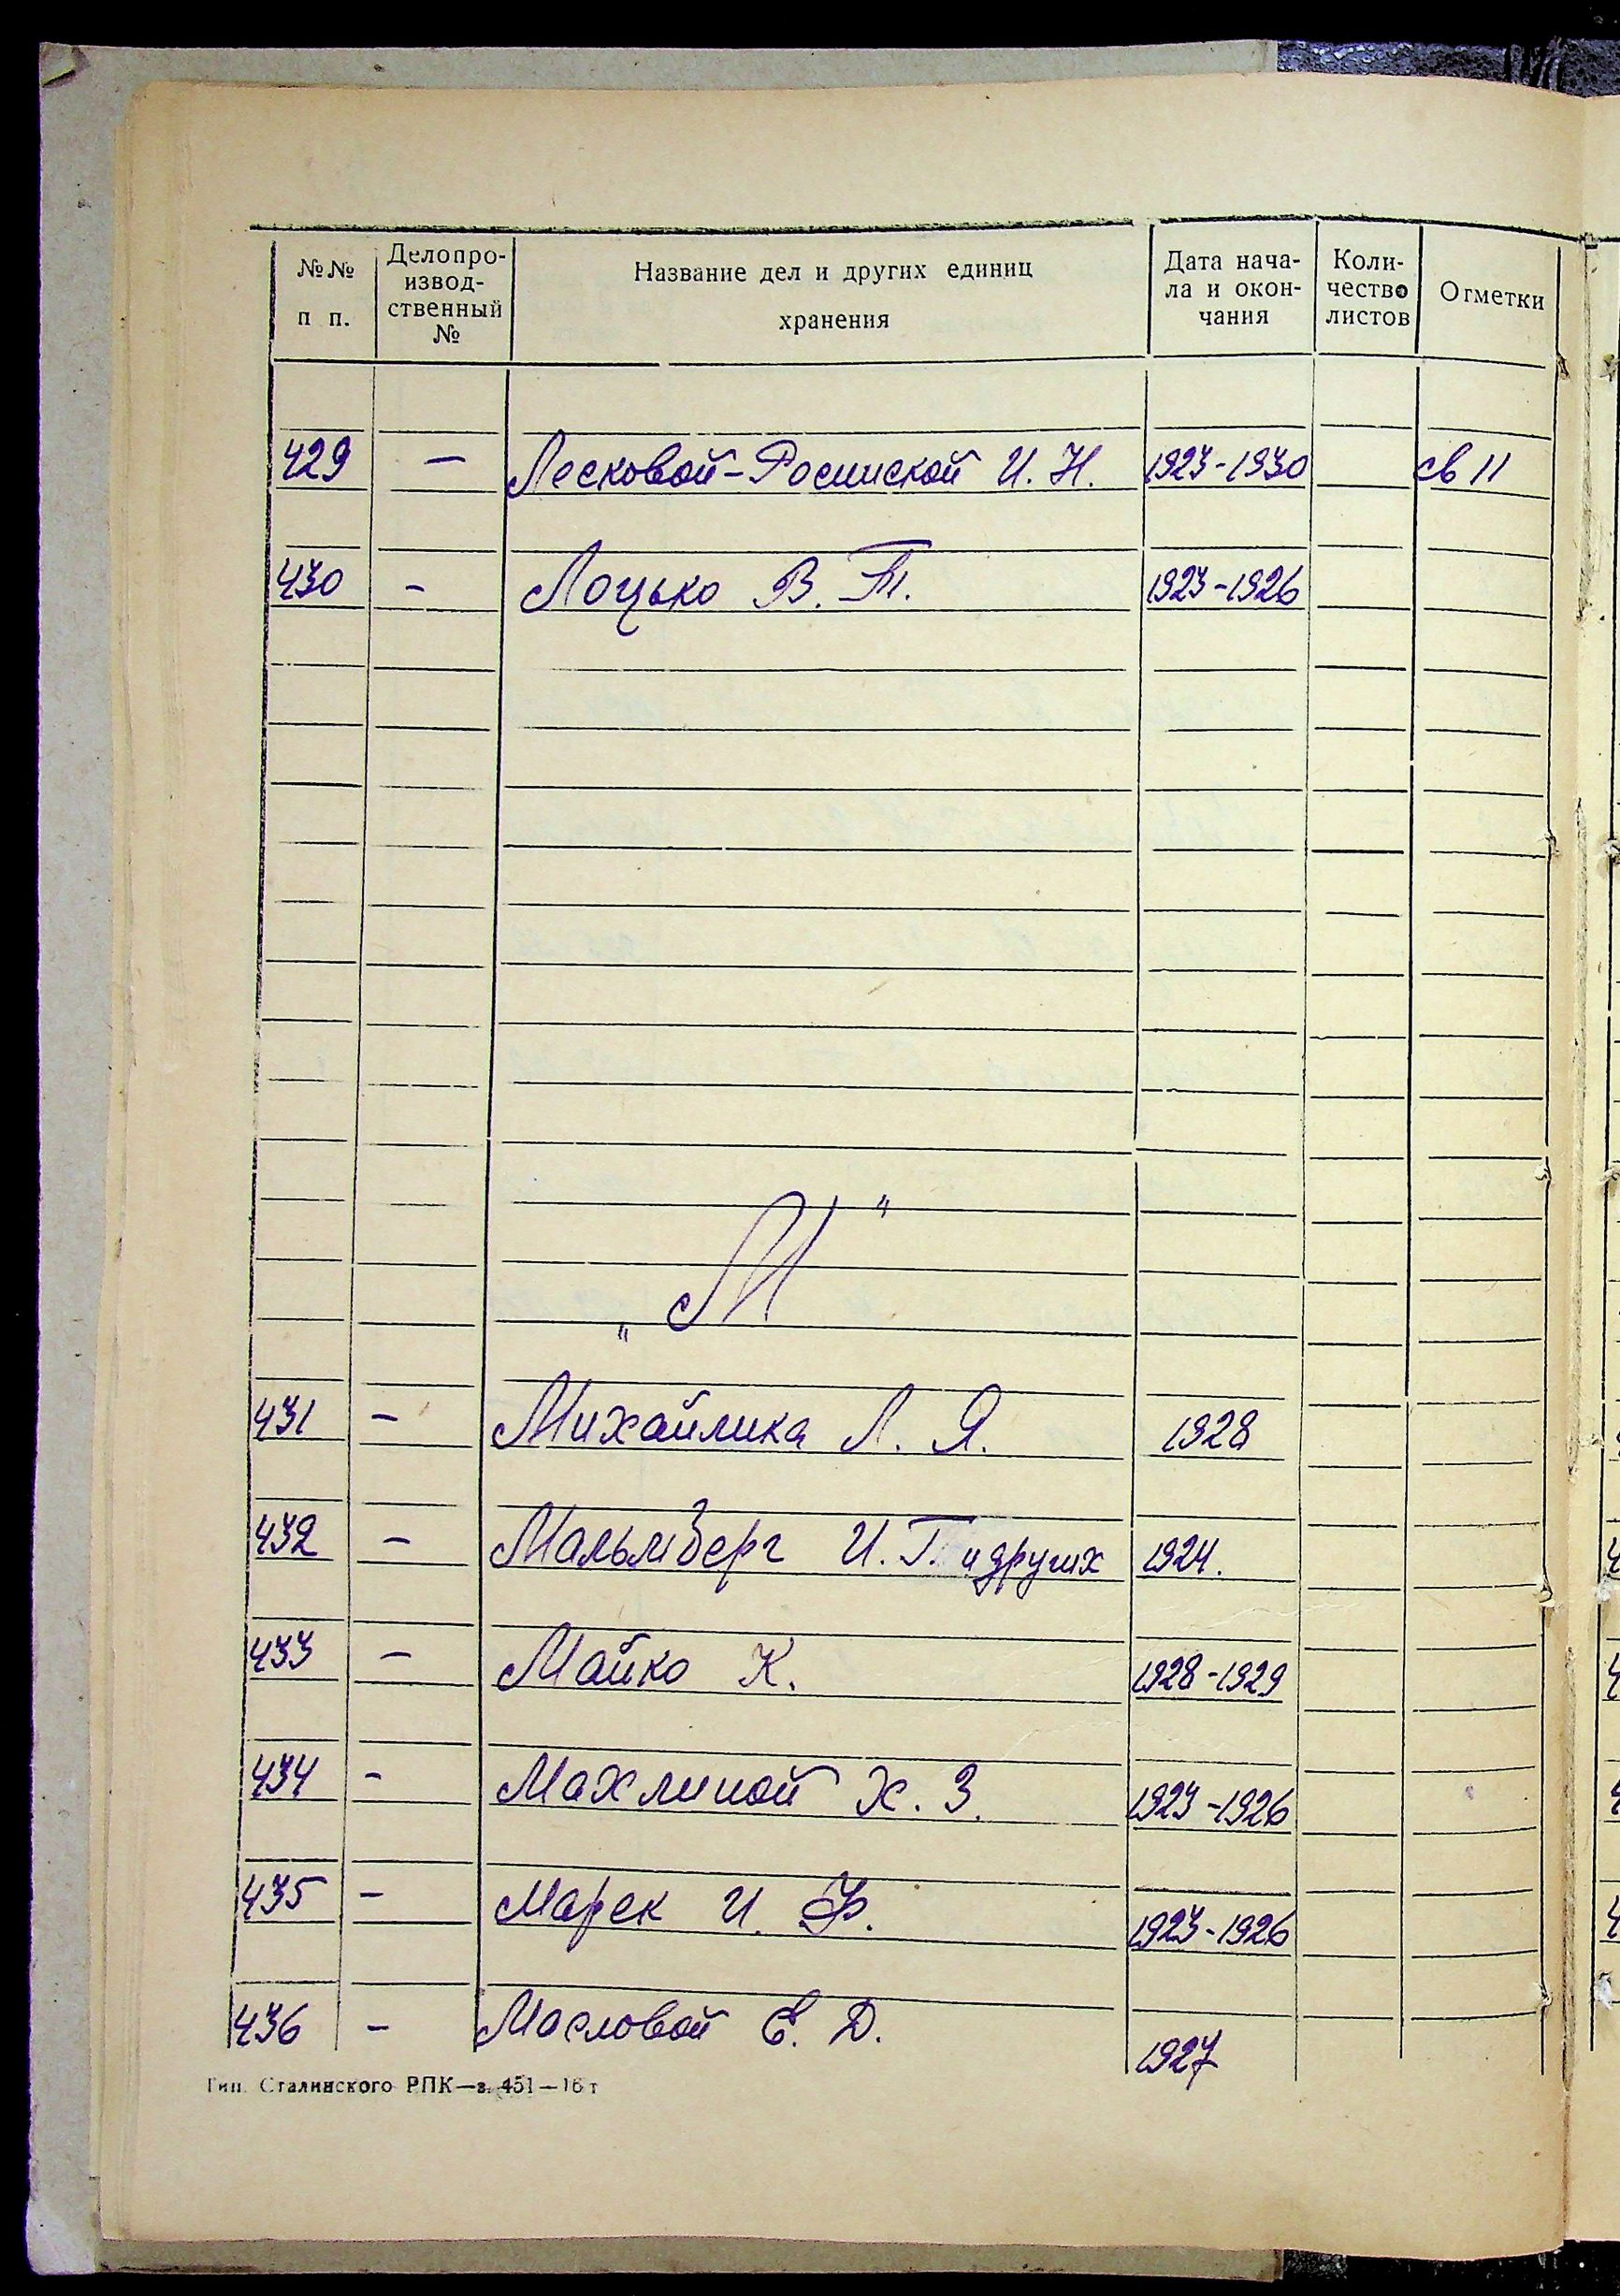 №№ п п.
Делопро-
извод-
ственный
№
Название дел и других единиц
хранения
Дата нача-
ла и окон-
чания
Коли-
чество
листов
Отметки
429 — Лесковой-Росинской И. Н. 1923-1930 св 11
430 - Лоцько В. Т. 1923-1926
„М"
431 — Михайлика Л. Я. 1928
432 — Мальмберг И. Г. и других 1924.
433 — Майко К. 1928-1929
434 - Махлиной Х. З. 1923-1926
435 - Марек И. Ф. 1923-1926
436 - Масловой Е. Д. 1927
Тип. Сталинского РПК—з. 451—16 т